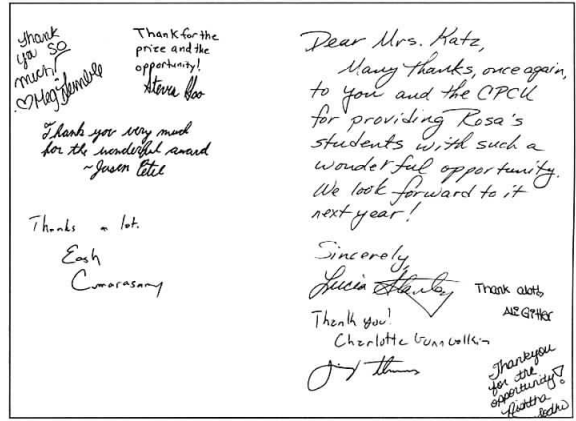 Thank
you SO
much!
♡ Meg
Thank for the
prize and the
opportunity!
Thank you very much
for the wonderful award
~Jason
Thanks a lot.
Eash
Cumarasamy
Dear Mrs. Katz,
Many thanks, once again,
to you and the CPCU
for providing Rosa's
students with such a
wonderful opportunity.
We look forward to it
next year!
Sincerely,
Lucia Stanley
Thank alot,
Ali Gitter
Thank you!
Charlotte
Thank you
for the
opportunity!